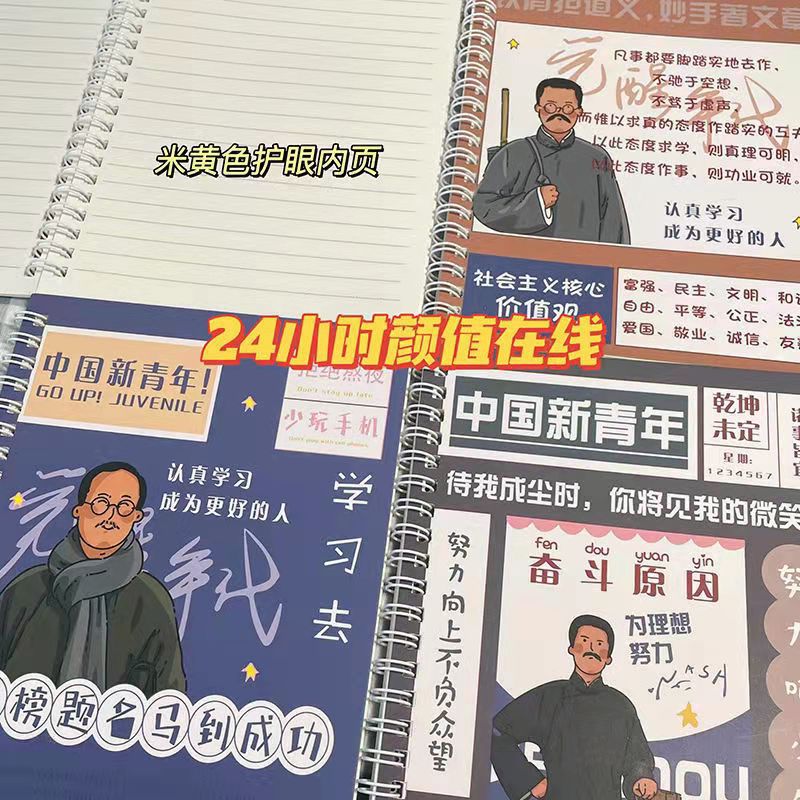 米黄色护眼内页
24小时颜值在线
铁肩担道义,妙手著文章
凡事都要脚踏实地去作、
不驰于空想、
不骛于虚声,
而惟以求真的态度作踏实的工夫
以此态度求学、则真理可明、
以此态度作事、则功业可就。
觉醒年代
认真学习
成为更好的人
社会主义核心
价值观
富强、民主、文明、和
自由、平等、公正、法
爱国、敬业、诚信、友
中国新青年!
GO UP! JUVENILE
拒绝熬夜
Don't stay up late
少玩手机
Don't play with cell phones
认真学习
成为更好的人
觉醒年代
学习去
榜题名马到成功
中国新青年
乾坤
未定
星期:
1234567
待我成尘时，你将见我的微笑
努力向上不负众望
fen dou yuan yin
奋斗原因
为理想
努力